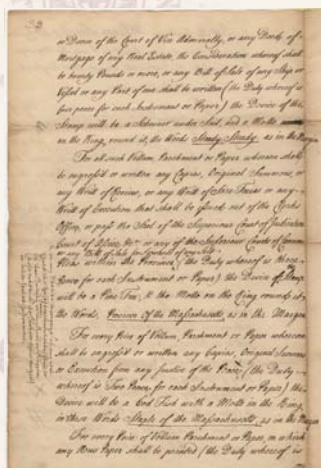 or Decree of the Court of Vice Admiralty, or any Deed, of
Mortgage of any Real Estate, the Consideration whereof shall
be twenty Pounds or more, or any Bill of Sale of any Ship or
Vessel or any Part of one shall be written (the Duty whereof is
four pence for each Instrument or Paper) the Device of the
Stamp will be a Schooner under Sail, and a Motto
in the Ring, round it, the Words Steady Steady, as in the Margin
For all such Vellum, Parchment or Paper whereon shall
be engrossed or written any Copies, Original Summons, or
any Writ of Review, or any Writ of Scire Facias or any
Writ of Execution that shall be issued out of the Clerks
Office, or pass the Seal of the Superiour Court of Judicature
Court of Assize, &c or any of the Inferiour Courts of Common
or any Bill of Sale for
Pleas within the Province (the Duty whereof is three
Pence for each Instrument or Paper) the Device of Stamp
will be a Pine Tree, & the Motto on the Ring round it
the Words, Province of the Massachusetts as in the Margin
For every Piece of Vellum, Parchment or Paper whereon
shall be engrossed or written any Copies, Original Summons
or Execution from any Justice of the Peace (the Duty
whereof is Two Pence, for each Instrument or Paper) the
Device will be a Cod Fish with a Motto in the Ring,
in these Words Staple of the Massachusetts, as in the Margin
For every Piece of Vellum Parchment or Paper, on which
any News Paper shall be printed (the Duty whereof is